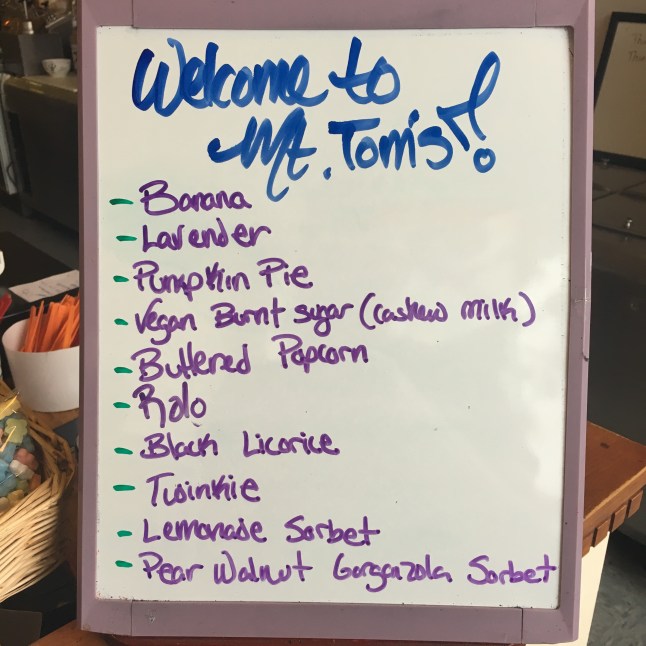 Welcome to
Mt. Tom's!
- Banana
- Lavender
- Pumpkin Pie
- Vegan Burnt sugar (cashew milk)
- Buttered Popcorn
- Rolo
- Black Licorice
- Twinkie
- Lemonade Sorbet
- Pear Walnut Gorgonzola Sorbet